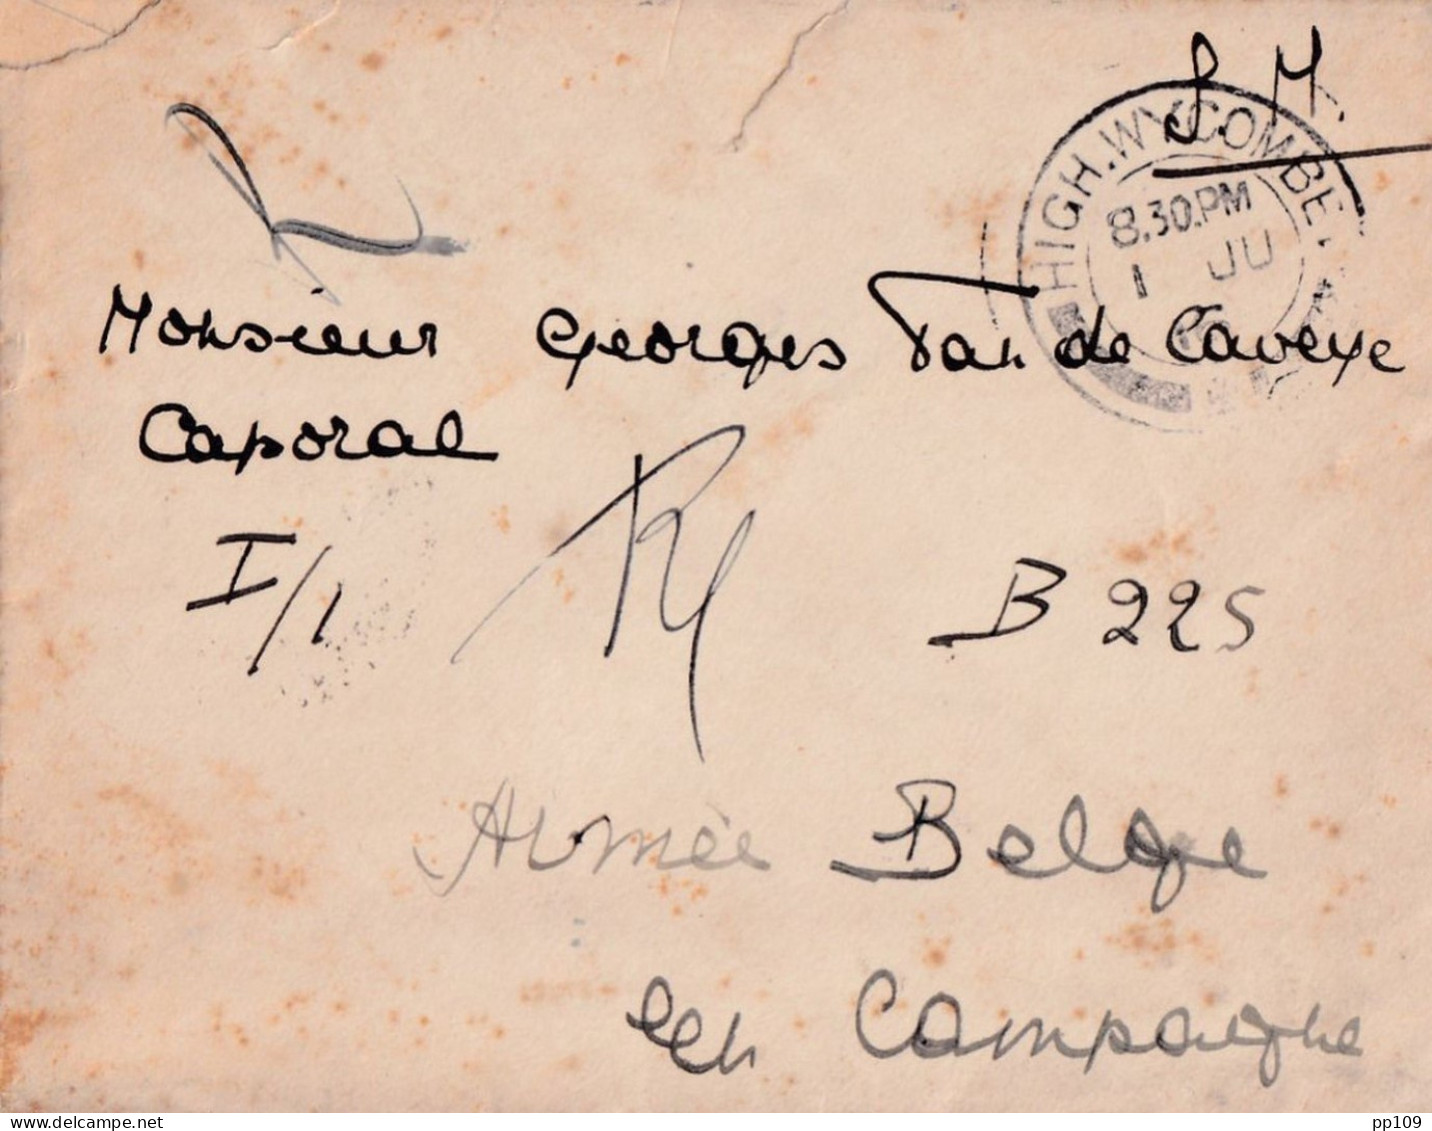 S. M.
HIGH.WYCOMBE
8.30.PM
1 JU
Monsieur Georges Van de Caveye
Caporal
I/1
B 225
Armée Belge
en Campaigne
delcampe.net
pp109